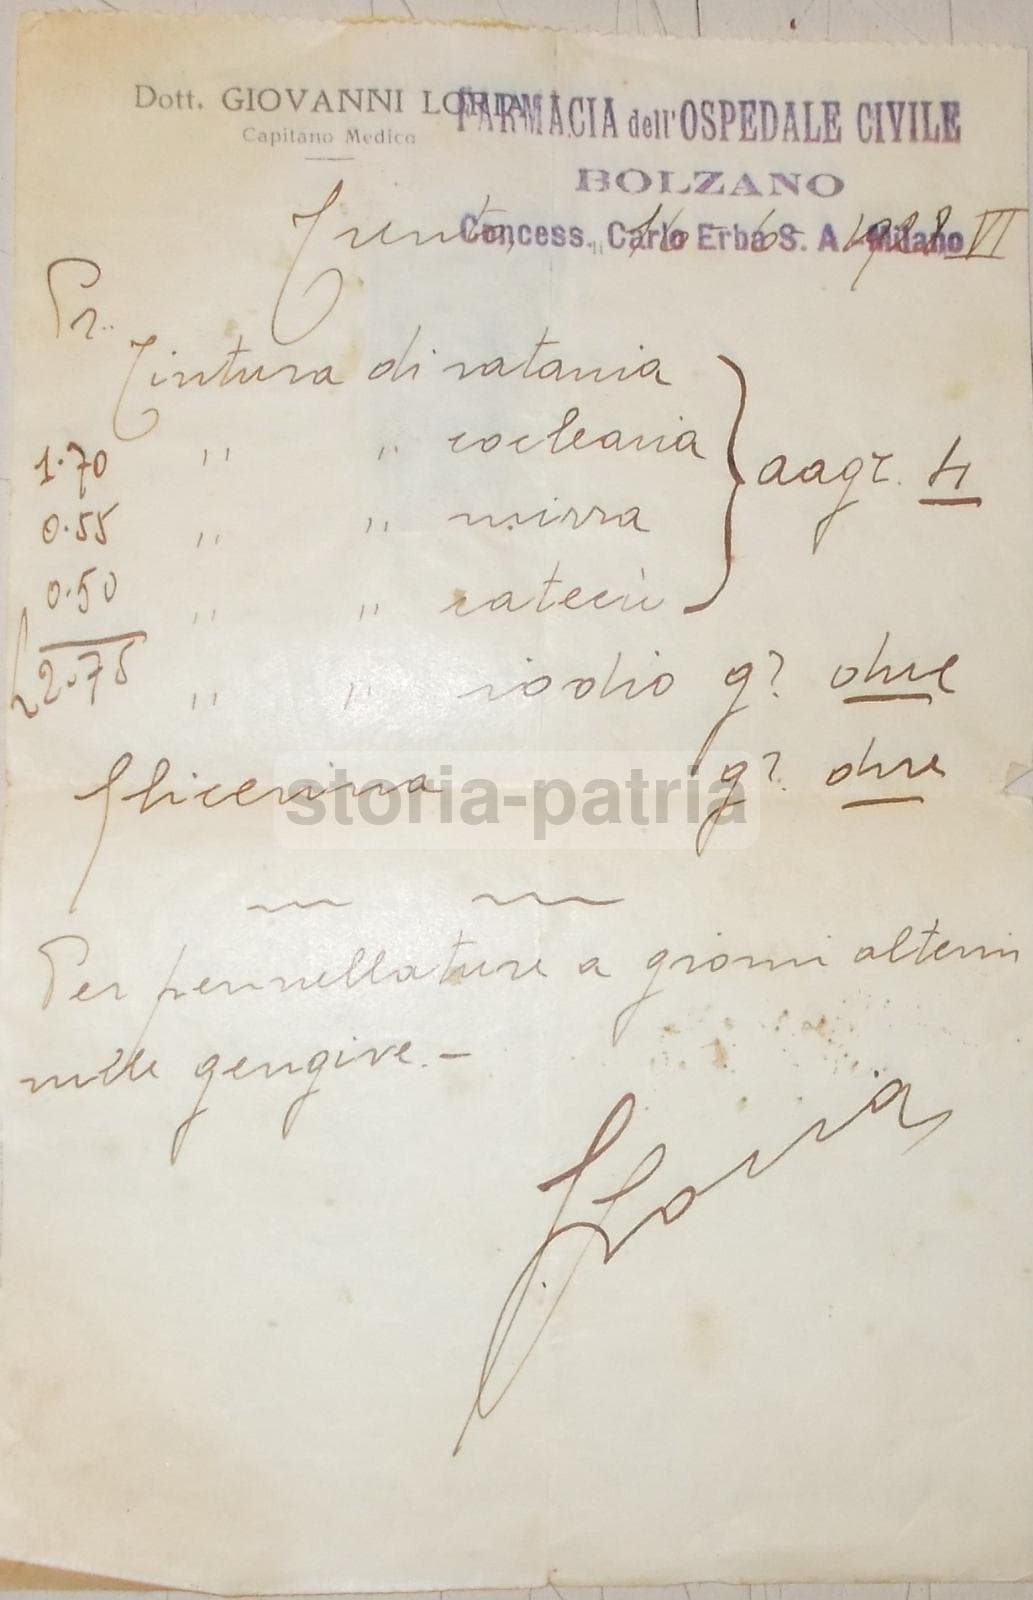 Dott. GIOVANNI LORIA
Capitano Medico
FARMACIA dell'OSPEDALE CIVILE
BOLZANO
Concess. Carlo Erba S. A. Milano
Trento, 16 - 6 - 1928 VI
Pr.
Tintura di ratania
1.70 " " coclearia
0.55 " " mirra
0.50 " " catecù
} aa gr. 4
L 2.75 " " iodio gr. due
Glicerina gr. due
storia-patria
Per pennellature a giorni alterni
nelle gengive. -
GLoria